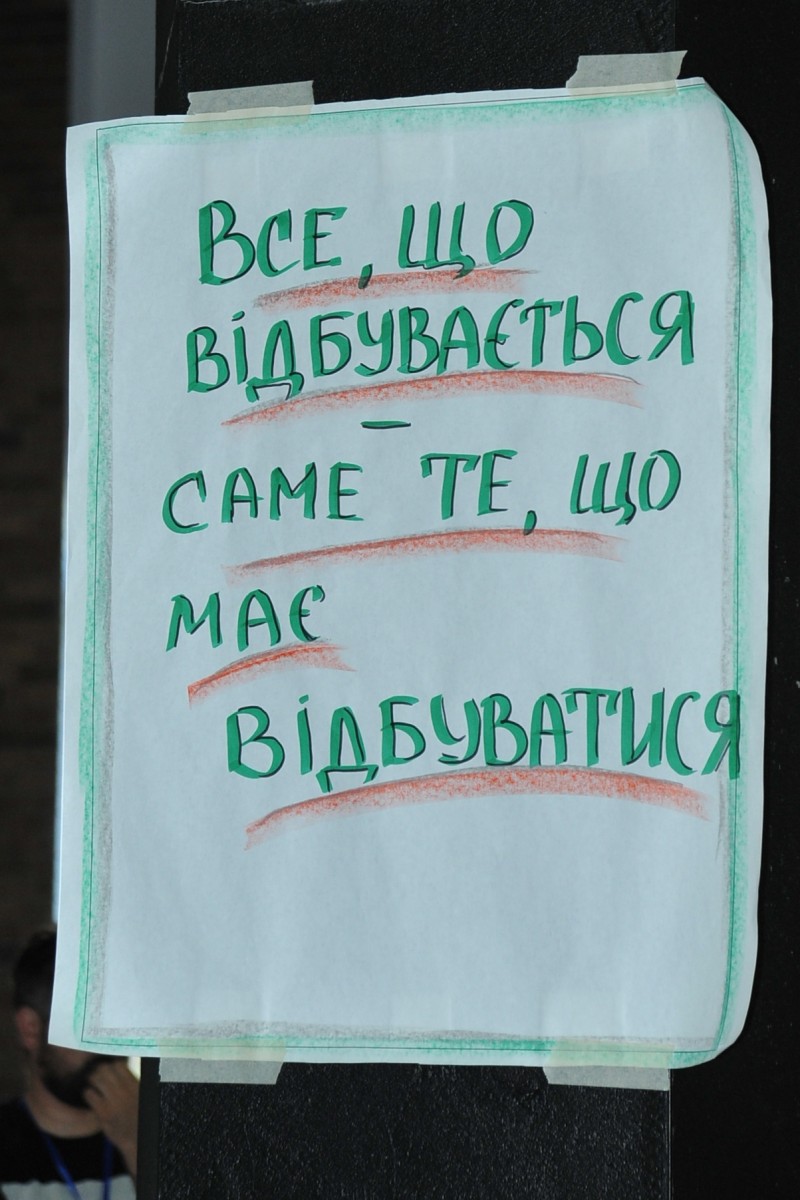 ВСЕ, ЩО
ВІДБУВАЄТЬСЯ
–
САМЕ ТЕ, ЩО
МАЄ
ВІДБУВАТИСЯ